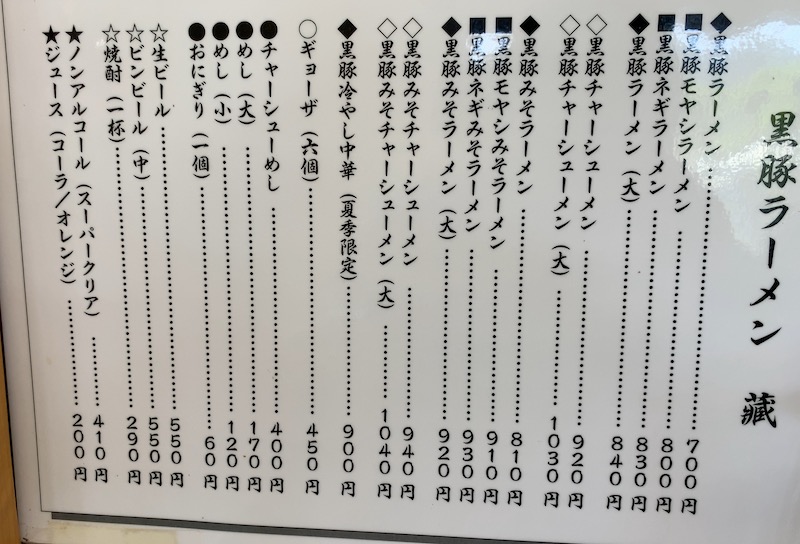 黒豚ラーメン 藏
◆黒豚ラーメン…700円
■黒豚モヤシラーメン…800円
■黒豚ネギラーメン…830円
◆黒豚ラーメン（大）…840円
◇黒豚チャーシューメン…920円
◇黒豚チャーシューメン（大）…1030円
◆黒豚みそラーメン…810円
■黒豚モヤシみそラーメン…910円
■黒豚ネギみそラーメン…930円
◆黒豚みそラーメン（大）…920円
◇黒豚みそチャーシューメン…940円
◇黒豚みそチャーシューメン（大）…1040円
◆黒豚冷やし中華（夏季限定）…900円
○ギョーザ（六個）…450円
●チャーシューめし…400円
●めし（大）…170円
●めし（小）…120円
●おにぎり（一個）…60円
☆生ビール…550円
☆ビンビール（中）…550円
☆焼酎（一杯）…290円
★ノンアルコール（スーパークリア）…410円
★ジュース（コーラ／オレンジ）…200円